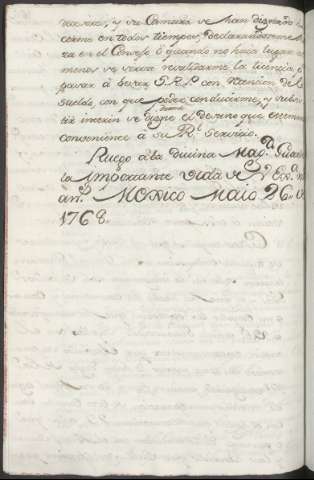 y su Camara se han dignado
como en todos tiempos, declarandoseme
ra en el Consejo ó quando no haya lugar
menos se sirva revalidarme la licencia,
pasar á besar S. R. P. con
sueldo, con que poder conducirme, y subsis
tir interin se digne el destino que
conveniente á su Rl. Servicio.
Ruego á la divina Magd. Guarde
la importante vida de V. Exa. m
ans. Mexico Maio 26 de
1768.